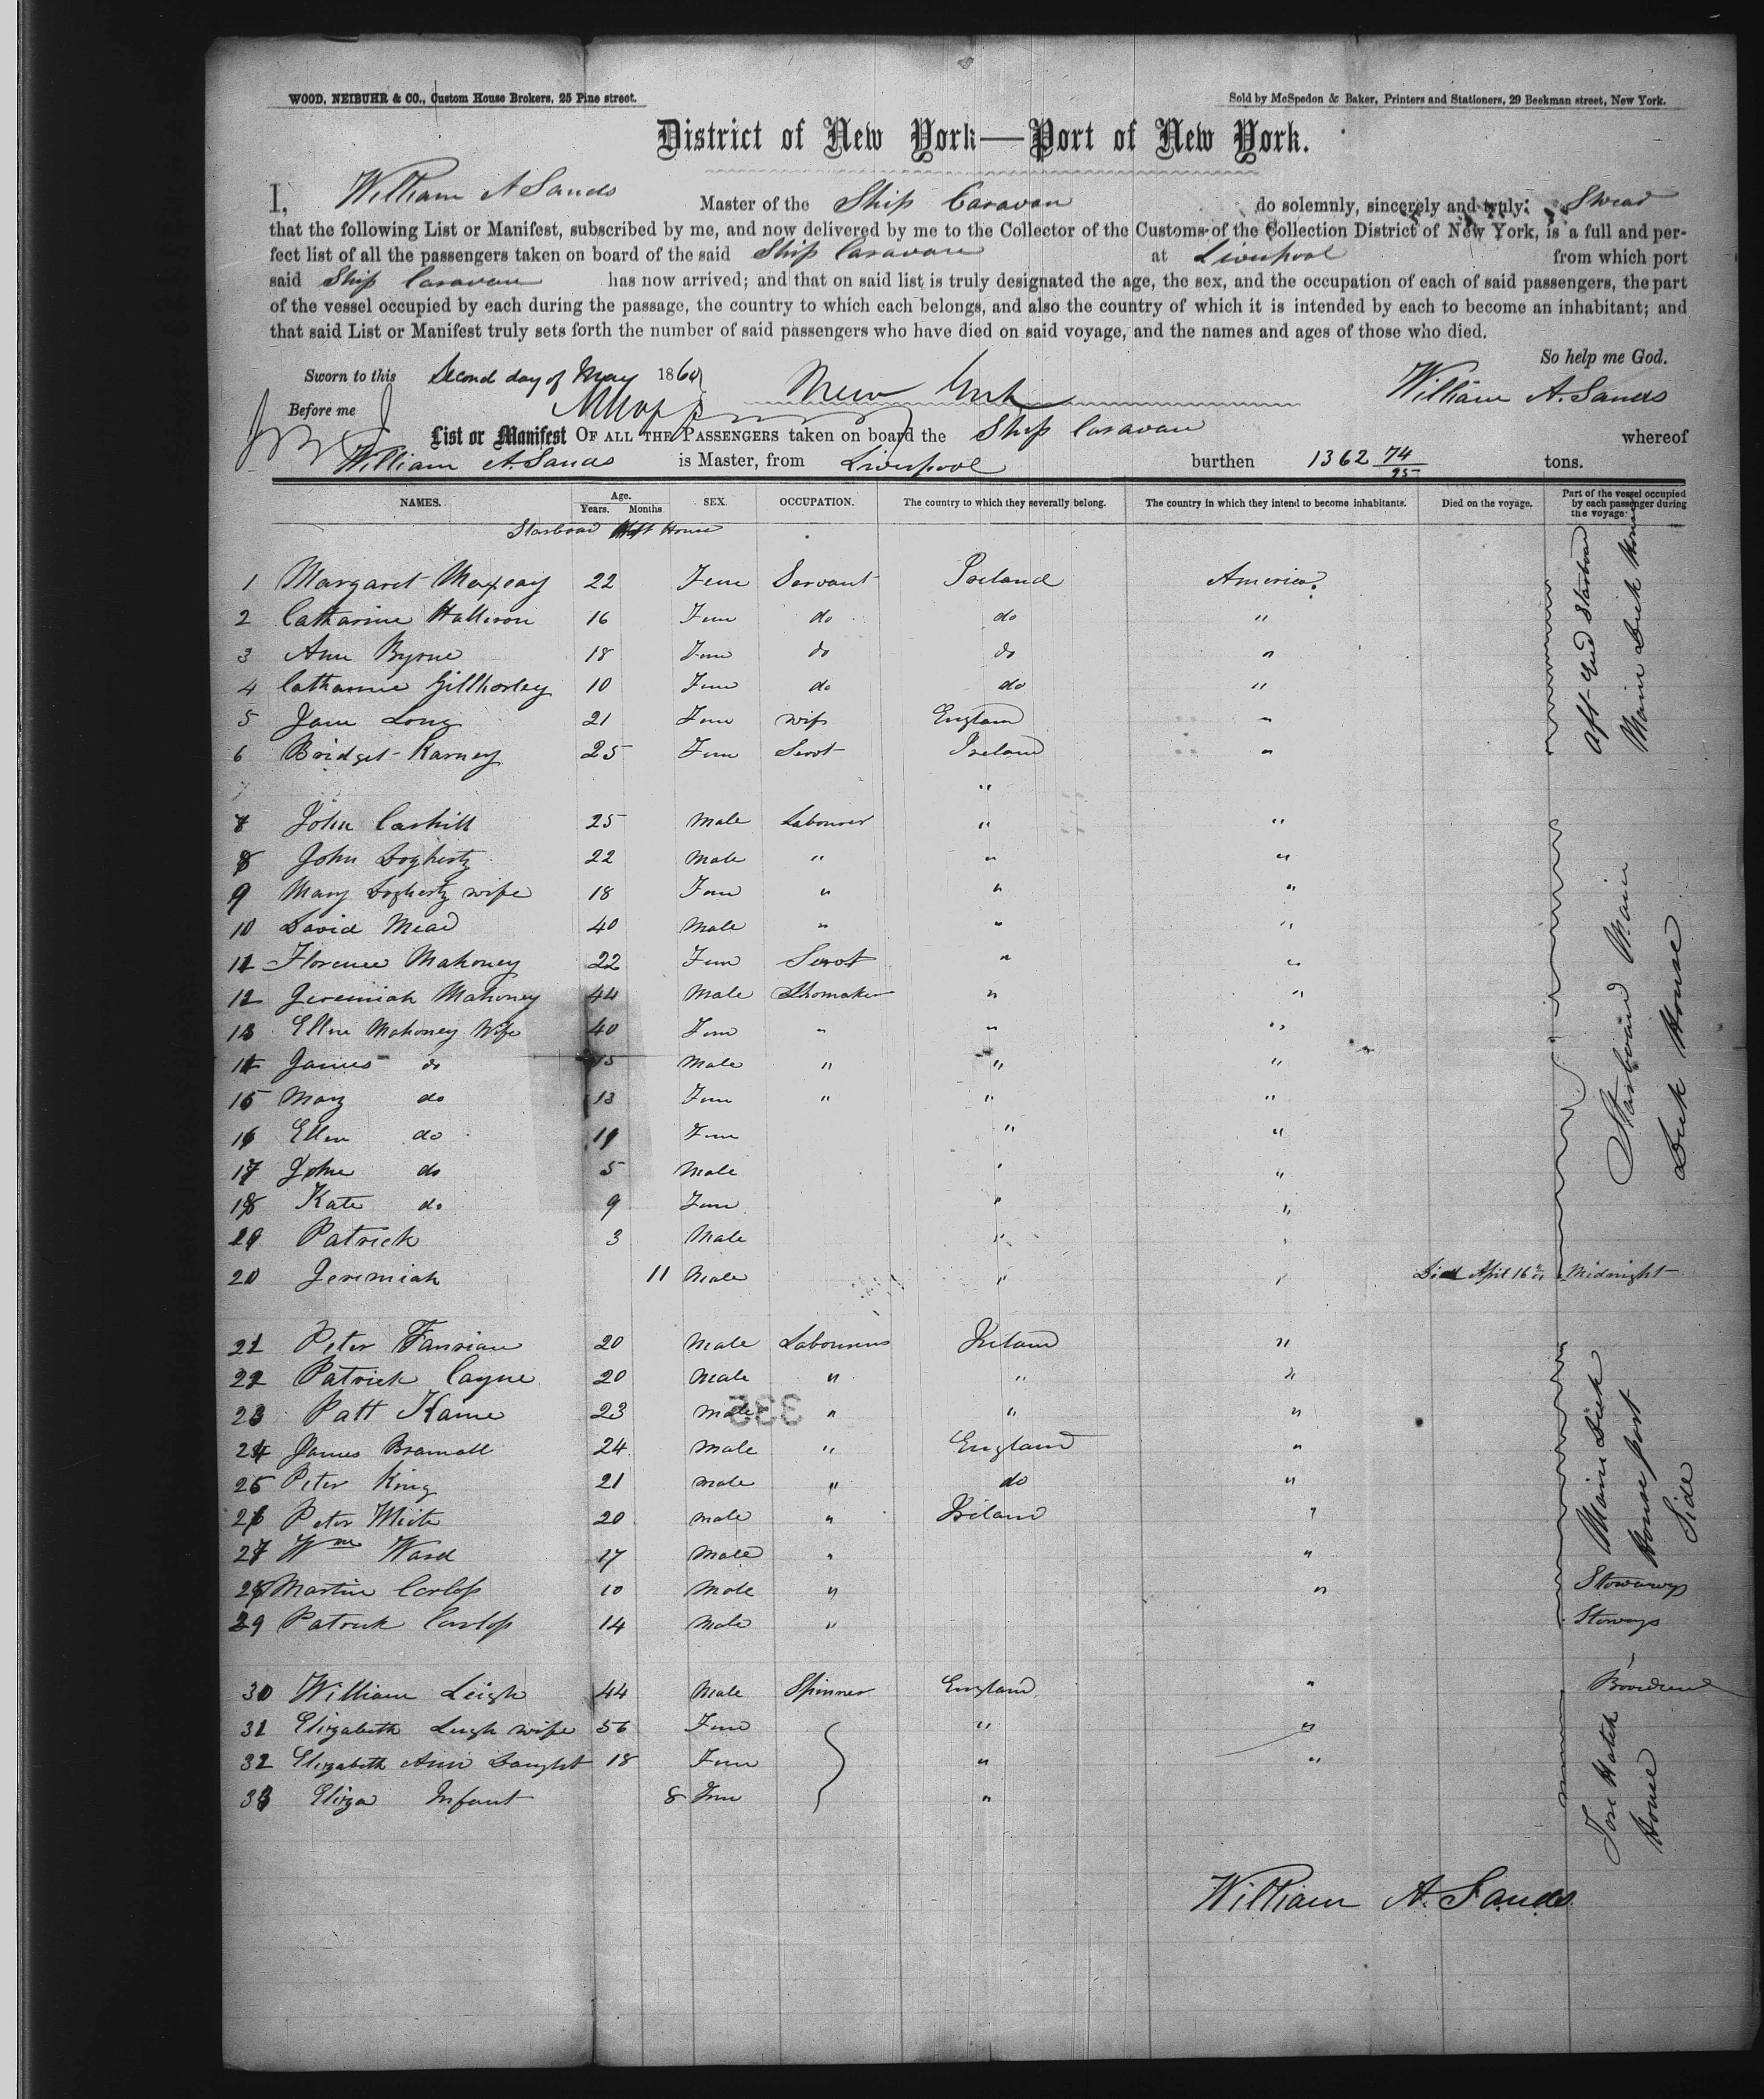 WOOD, NEIBUHR & CO., Custom House Brokers, 25 Pine street.
Sold by McSpedon & Baker, Printers and Stationers, 29 Beekman street, New York.
District of New York—Port of New York.
I, William A Sands Master of the Ship Caravan do solemnly, sincerely and truly: Swear
that the following List or Manifest, subscribed by me, and now delivered by me to the Collector of the Customs of the Collection District of New York, is a full and per-
fect list of all the passengers taken on board of the said Ship Caravan at Liverpool from which port
said Ship Caravan has now arrived; and that on said list is truly designated the age, the sex, and the occupation of each of said passengers, the part
of the vessel occupied by each during the passage, the country to which each belongs, and also the country of which it is intended by each to become an inhabitant; and
that said List or Manifest truly sets forth the number of said passengers who have died on said voyage, and the names and ages of those who died.
So help me God.
Sworn to this Second day of May 1860 New York William A. Sands
Before me
List or Manifest OF ALL THE PASSENGERS taken on board the Ship Caravan whereof
William A. Sands is Master, from Liverpool burthen 1362 74/95 tons.
NAMES. Age. Years. Months SEX. OCCUPATION. The country to which they severally belong. The country in which they intend to become inhabitants. Died on the voyage. Part of the vessel occupied by each passenger during the voyage
Starboard Aft House
1 Margaret 22 Fem Servant Ireland America.
2 Catharine Halleron 16 Fem do do "
3 Ann Byrne 18 Fem do do "
4 Catharine Gillhorley 10 Fem do do "
5 Jane Long 21 Fem wife England "
6 Bridget Karney 25 Fem Servt Ireland "
"
7 John Cashill 25 Male Labourer " "
8 John Dogherty 22 Male " " "
9 Mary Doghertz wife 18 Fem " " "
10 David Mead 40 Male " " "
11 Florence Mahoney 22 Fem Servt " "
12 Jeremiah Mahoney 44 Male Shomaker " "
13 Ellen Mahoney Wife 40 Fem " " "
14 James do 15 Male " " "
15 Mary do 13 Fem " " "
16 Ellen do 19 Fem " "
17 John do 5 Male " "
18 Kate do 9 Fem " "
19 Patrick 3 Male " "
20 Jeremiah 11 Male " " Died April 16th Midnight
21 Peter 20 Male Labourers Ireland "
22 Patrick Cayne 20 Male " " "
23 Patt Kane 23 Male " " "
24 James Bramall 24 Male " England "
25 Peter King 21 Male " do "
26 Peter 20 Male " Ireland "
27 Wm Ward 17 Male " "
28 Martin 10 Male " " Stowaways
29 Patrick 14 Male " Stoways
30 William Leigh 44 Male Spinner England "
31 Elizabeth Leigh wife 56 Fem " "
32 Elizabeth Ann Daught 18 Fem " "
33 Eliza Infant 8 Fem "
Aft End Starboard
Main Deck House
Starboard Main
Deck House
Main Deck
House port
Side
Fore Hatch
House
335
William A. Sands